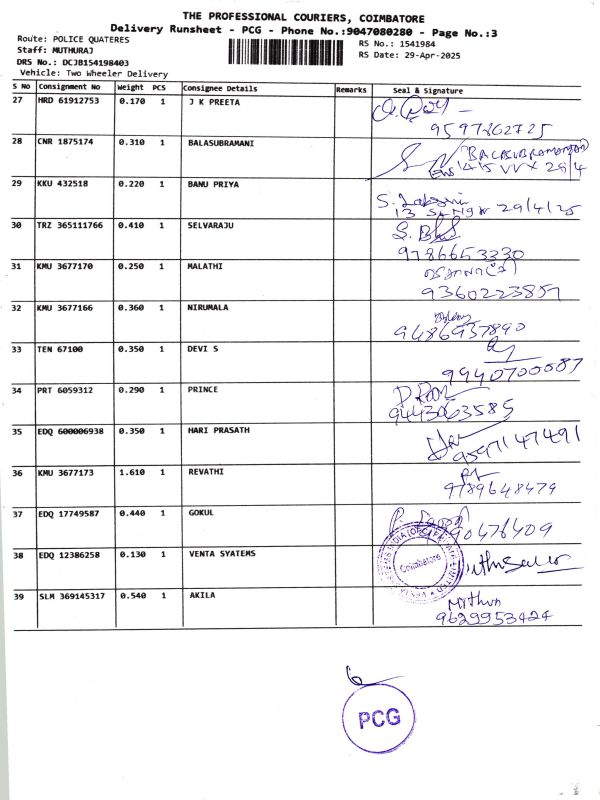 THE PROFESSIONAL COURIERS, COIMBATORE
Delivery Runsheet - PCG - Phone No.:9047080280 - Page No.:3
Route: POLICE QUATERES
RS No.: 1541984
Staff: MUTHURAJ
RS Date: 29-Apr-2025
DRS No.: DCJB154198403
Vehicle: Two Wheeler Delivery
S No Consignment No Weight PCS Consignee Details Remarks Seal & Signature
27 HRD 61912753 0.170 1 J K PREETA
9597262725
28 CNR 1875174 0.310 1 BALASUBRAMANI
(BALASUBRAMANIAN)
29/4
29 KKU 432518 0.220 1 BANU PRIYA
29/4/25
30 TRZ 365111766 0.410 1 SELVARAJU
9786653330
31 KMU 3677170 0.250 1 MALATHI
9360223857
32 KMU 3677166 0.360 1 NIRUMALA
9486937890
33 TEN 67100 0.350 1 DEVI S
9940700087
34 PRT 6059312 0.290 1 PRINCE
9443063585
35 EDQ 600006938 0.350 1 HARI PRASATH
9597147491
36 KMU 3677173 1.610 1 REVATHI
9789648479
37 EDQ 17749587 0.440 1 GOKUL
90476409
38 EDQ 12386258 0.130 1 VENTA SYATEMS
Coimbatore
39 SLM 369145317 0.540 1 AKILA
Mithun
9629953424
PCG